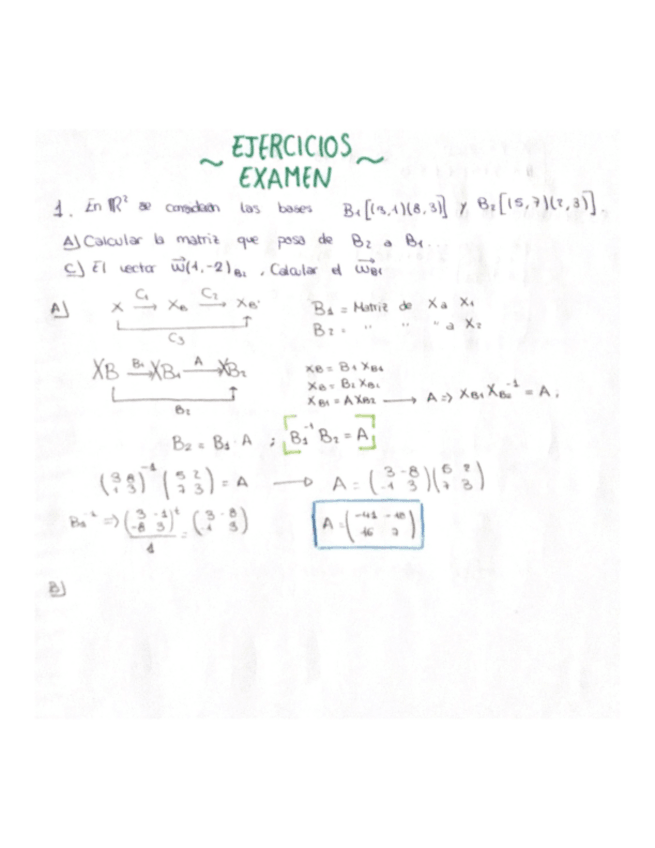 ~ EJERCICIOS ~
EXAMEN
1. En ℝ² se consideran las bases B₁[(3,1)(8,3)] y B₂[(5,7)(2,3)].
A) Calcular la matriz que pasa de B₂ a B₁.
C) El vector w(1,-2)_B₂. Calcular el w_B₁
A) X C₁→ X_B C₂→ X_B'
C₃
B₁ = Matriz de X a X₁
B₂ = " " " a X₂
XB B₁→ XB₁ A→ XB₂
B₂
X_B = B₁ X_B₁
X_B = B₂ X_B₂
X_B₁ = A X_B₂ → A => X_B₁ X_B₂⁻¹ = A ;
B₂ = B₁ · A ; [B₁⁻¹ B₂ = A]
(3 8
1 3)⁻¹ (5 2
7 3) = A → A = (3 -8
-1 3)(5 2
7 3)
B₁⁻¹ => (3 -1
-8 3)ᵗ
1
= (3 -8
-1 3)
A = (-41 -18
16 7)
B)